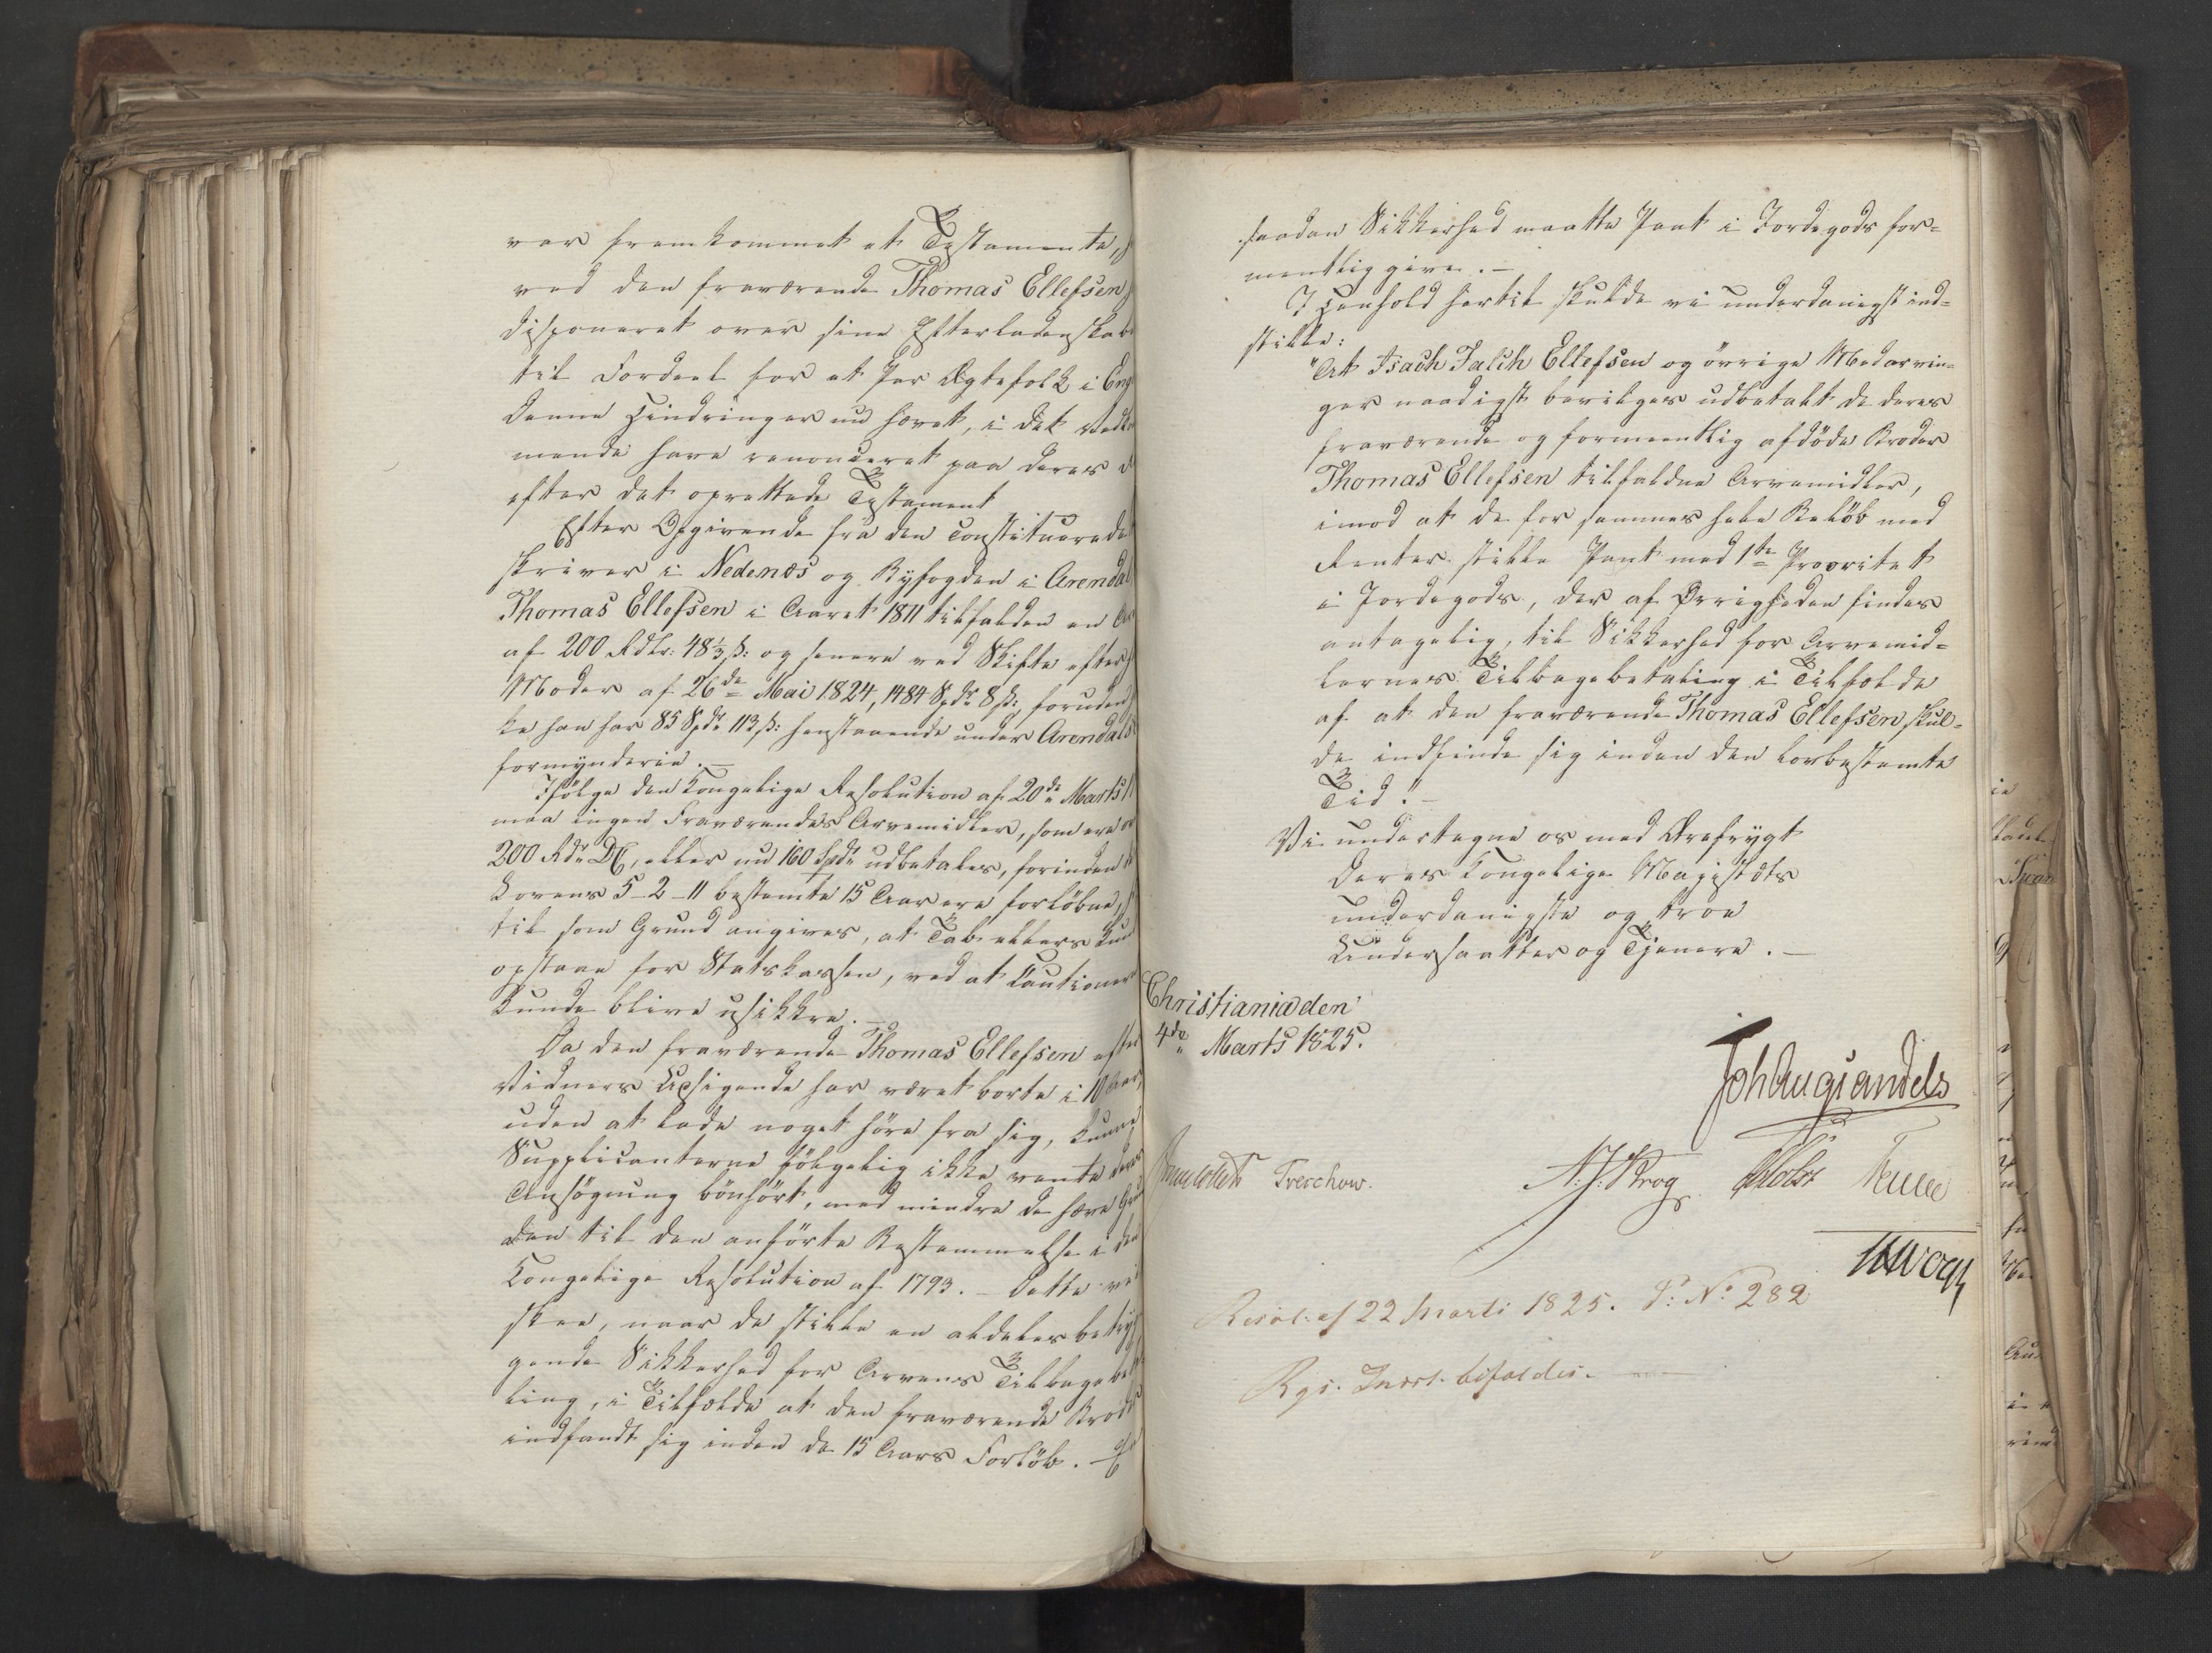 var fremkommet et Testamente,
ved den fraværende Thomas Ellefsen
disponeret over sine Efterladenskab
til Fordeel for et Par Ægtefolk i Eng
denne Hindringer nu hævet, i det Vedko
mende have renonceret paa deres
efter det oprettede Testament
Efter Opgivende fra den constituerede
skriver i Nedenæs og Byfogden i Arendal
Thomas Ellefsen i Aaret 1811 tilfalden en Ar
af 200 Rdlr: 48⅓ ß: og senere ved Skifte efter
Moder af 26de Mai 1824, 1484 Spdr 8 ß: foruden
ke han har 85 Spdr 113 ß: henstaaende under Arendals
formynderie.—
Ifølge den Kongelige Resolution af 20de Marts
maa ingen Fraværendes Arvemidler, som ere
200 Rdr DC, eller nu 160 Spdr udbetales, forinden
Lovens 5-2-11 bestemte 15 Aar ere forløbne,
til som Grund angives, at Tab ellers kun
opstaae for Statskassen, ved at Cautioner
kunde blive usikkre.—
Da den fraværende Thomas Ellefsen efter
Vidners Udsigende har været borte i 10 Aar,
uden at lade noget høre fra sig, kunne
Supplicanterne følgelig ikke vente deres
Ansøgning bønhørt, med mindre de hæve Grun
den til den anførte Bestemmelse i den
Kongelige Resolution af 1793.— Dette vil
skee, naar de stille en aldeles betryg
gende Sikkerhed for Arvens Tilbagebeta
ling, i Tilfælde at den fraværende Broder
indfandt sig inden de 15 Aars Forløb.—
saadan Sikkerhed maatte Pant i Jordegods for=
mentlig give.—
I Henhold hertil skulde vi underdanigst ind=
stille:
"At Isach Falch Ellefsen og øvrige Medarvin=
ger naadigst bevilges udbetalt de deres
fraværende og formeentlig afdøde Broder
Thomas Ellefsen tilfaldne Arvemidler,
imod at de for sammes hele Beløb med
Renter stille Pant med 1te Prioritet
i Jordegods, der af Øvrigheden findes
antagelig, til Sikkerhed for Arvemid=
lernes Tilbagebetaling i Tilfælde
af at den fraværende Thomas Ellefsen skul=
de indfinde sig inden den lovbestemte
Tid."—
Vi undertegne os med Ærefrygt
Deres Kongelige Majestæts
underdanigste og troe
Undersaatter og Tjenere.—
Christiania den
4de Marts 1825.
Joh Aug Sandels
Jonas Collett Treschow. N. J. Krog Holst
Resol: af 22 Marti 1825. P: No 282
Rgs. Indst. bifaldes.—